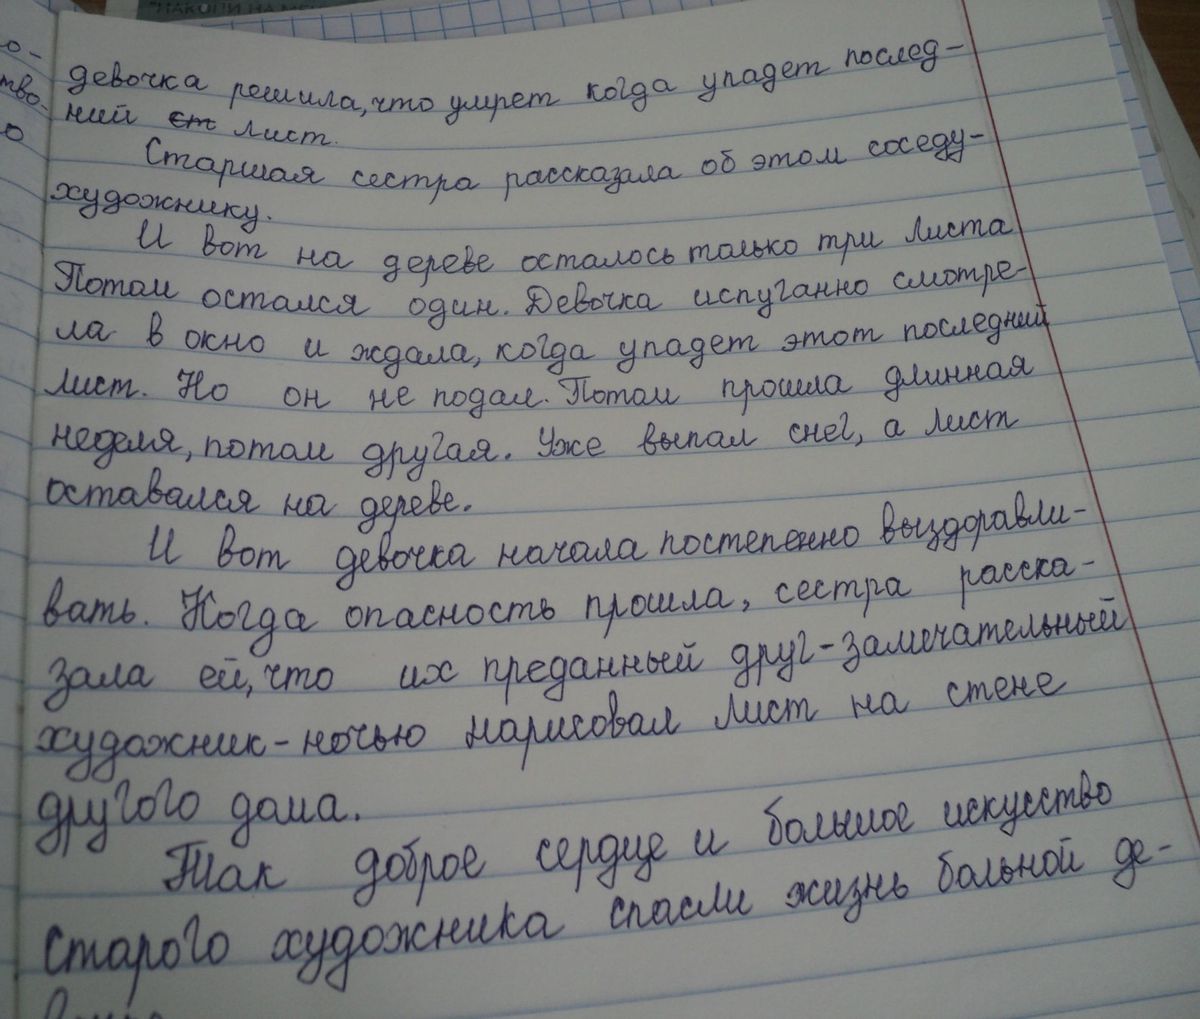 "НАКОПИ НА МЕ
о-
тво-
о
девочка решила, что умрет когда упадет послед-
ний ст лист.
Старшая сестра рассказала об этом соседу-
художнику.
И вот на дереве осталось только три листа
Потом остался один. Девочка испуганно смотре-
ла в окно и ждала, когда упадет этот последний
лист. Но он не подал. Потом прошла длинная
неделя, потом другая. Уже выпал снег, а лист
оставался на дереве.
И вот девочка начала постепенно выздоравли-
вать. Когда опасность прошла, сестра расска-
зала ей, что их преданный друг-замечательный
художник-ночью нарисовал лист на стене
другого дома.
Так доброе сердце и большое искусство
старого художника спасли жизнь больной де-